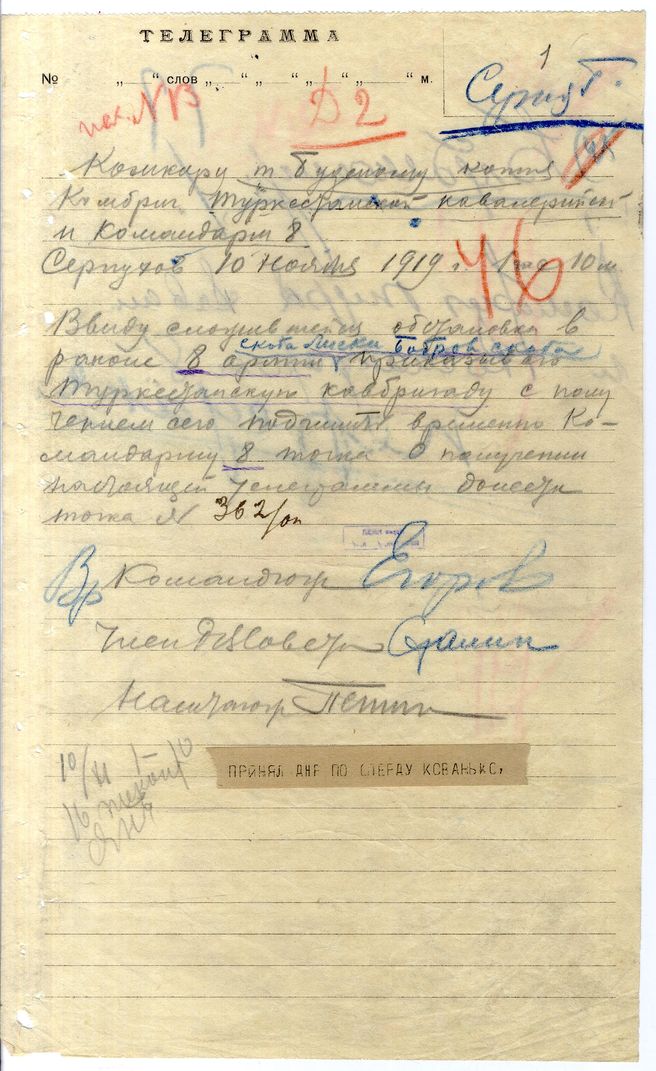 ТЕЛЕГРАММА
№ „ “ слов „ “ „ “ „ “ „ “ м.
1
Серпух.
исх. № В
Д2
Конкору т. Буденому копия
Комбриг Туркестанской кавалерийской
и Командарм 8
46
Серпухов 10 ноября 1919 г. 1 час 10 м
Ввиду сложившейся обстановки в
скоба Лиски Бобров скоба
районе 8 армии приказываю
Туркестанскую кавбригаду с полу
чением сего подчинить временно Ко-
мандарму 8 точка О получении
настоящей телеграммы донести
точка № 362/оп
Вр Командюгр Егоров
Член РВСовета Сталин
Наштаюгр Петин
10/XI
ПРИНЯЛ ДНР ПО СТЕРДУ КОВАНЬКО,